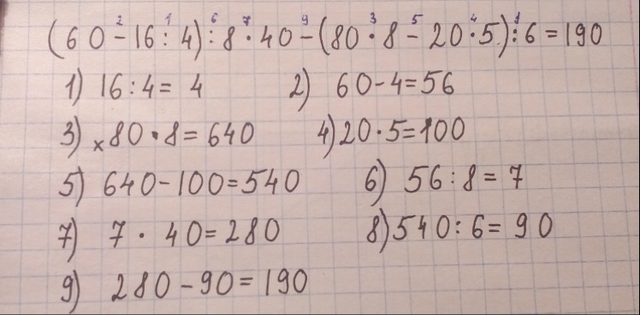 2 1 6 7 9 3 5 4 8
(60-16:4):8·40-(80·8-20·5):6=190
1) 16:4=4 2) 60-4=56
3) ×80·8=640 4) 20·5=100
5) 640-100=540 6) 56:8=7
7) 7·40=280 8) 540:6=90
9) 280-90=190